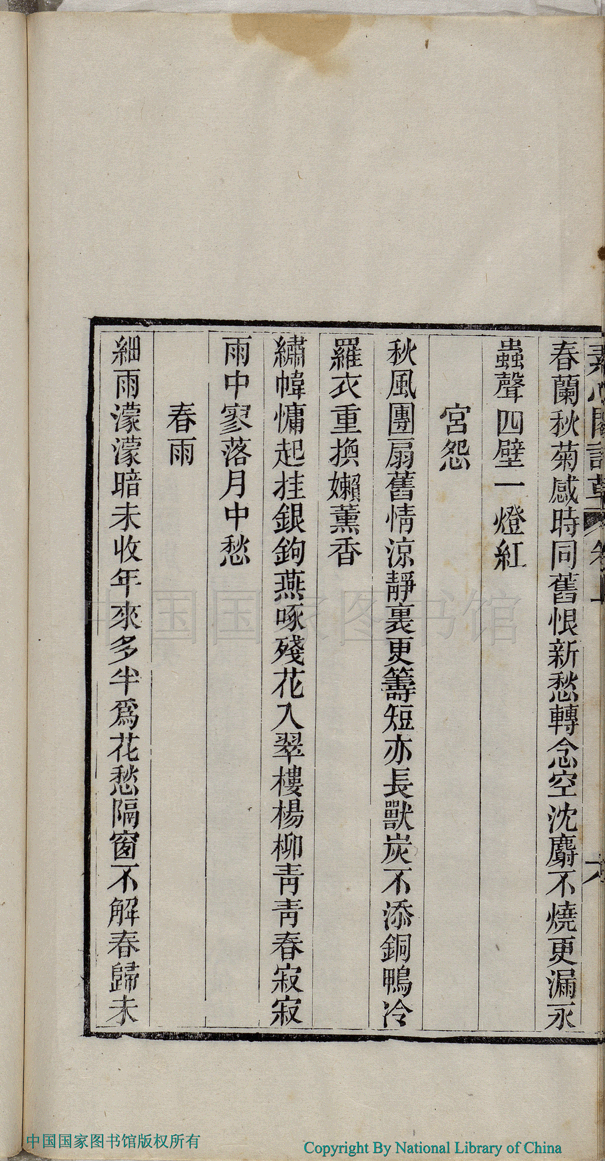 春蘭秋菊感時同舊恨新愁轉念空沈麝不燒更漏永
蟲聲四壁一燈紅
宮怨
秋風團扇舊情涼靜裏更籌短亦長獸炭不添銅鴨冷
羅衣重換嬾薰香
繡幃慵起挂銀鉤燕啄殘花入翠樓楊柳靑靑春寂寂
雨中寥落月中愁
春雨
細雨濛濛暗未收年來多半爲花愁隔窗不解春歸未
中国国家图书馆
中国国家图书馆版权所有
Copyright By National Library of China